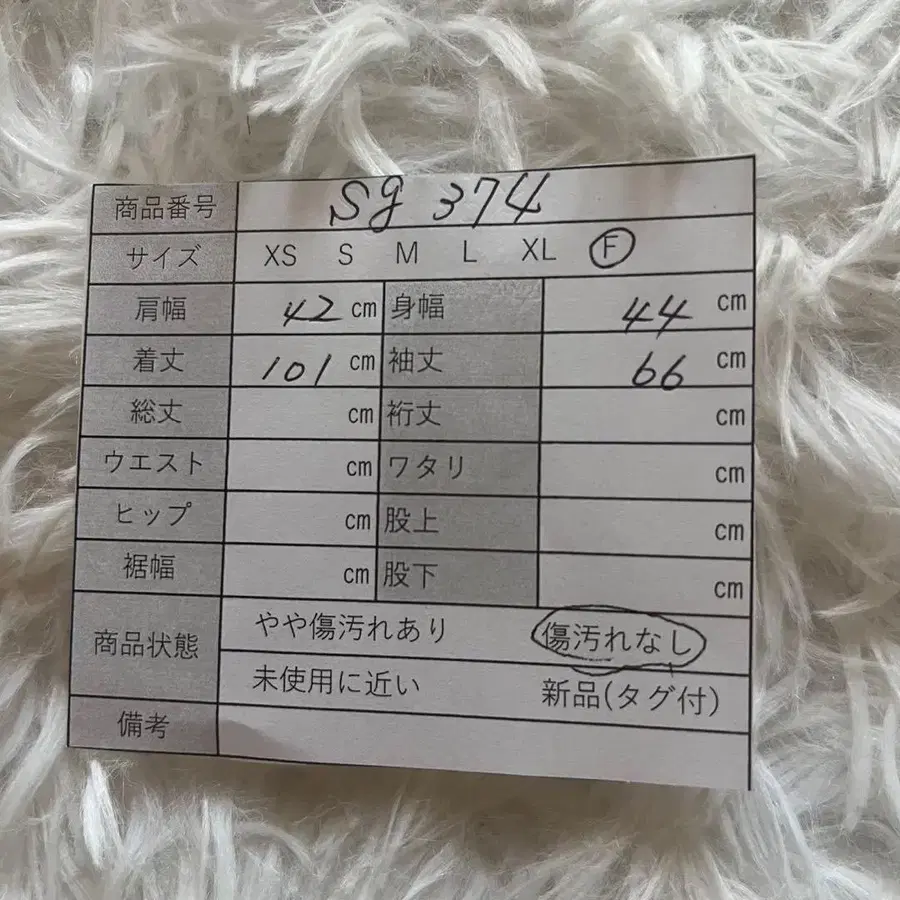 商品番号 Sg 374
サイズ XS S M L XL F
肩幅 42 cm 身幅 44 cm
着丈 101 cm 袖丈 66 cm
総丈 cm 裄丈 cm
ウエスト cm ワタリ cm
ヒップ cm 股上 cm
裾幅 cm 股下 cm
商品状態 やや傷汚れあり 傷汚れなし
未使用に近い 新品(タグ付)
備考